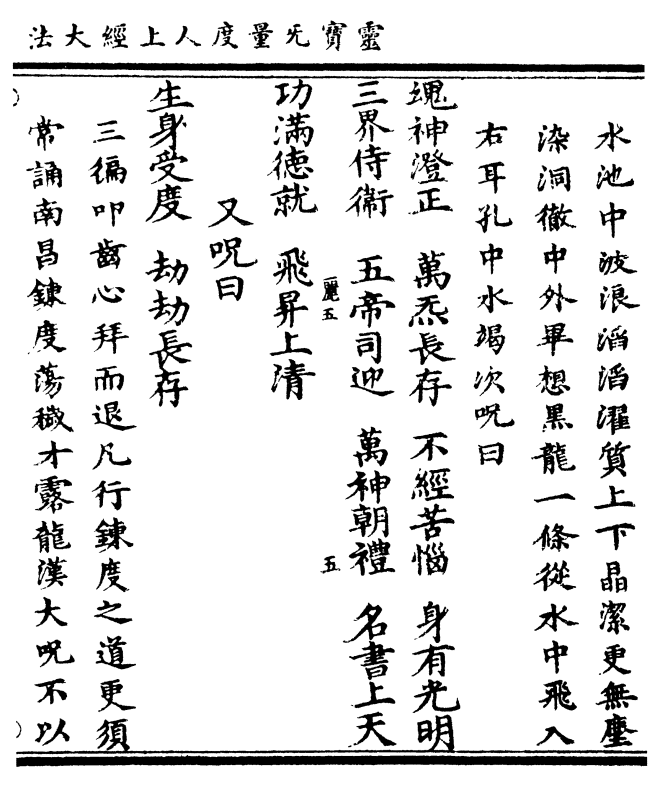 靈寶旡量度人上經大法
水池中波浪滔滔濯質上下晶潔更無塵
染洞徹中外畢想黑龍一條從水中飛入
右耳孔中水竭次呪曰
魂神澄正　萬炁長存　不經苦惱　身有光明
三界侍衞　五帝司迎　萬神朝禮　名書上天
麗五　五
功滿德就　飛昇上清
又呪曰
生身受度　劫劫長存
三徧叩齒心拜而退凡行鍊度之道更須
常誦南昌鍊度蕩穢才露龍漢大呪不以